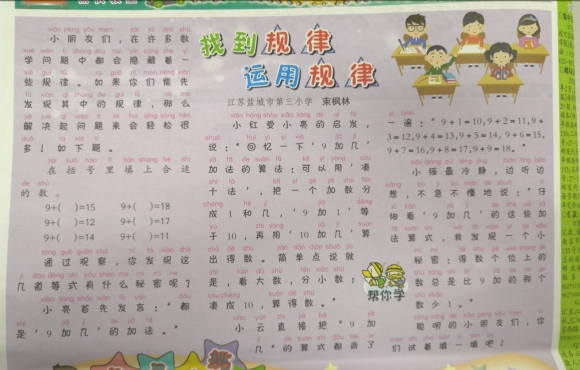 找到规律
运用规律
江苏盐城市第三小学 束枫林
小朋友们，在许多数
学问题中都会隐藏着一
些规律。如果你们能先
发现其中的规律，那么
解决起问题来会轻松很
多！如下题。
在括号里填上合适
的数。
9+( )=15 9+( )=18
9+( )=12 9+( )=17
9+( )=14 9+( )=11
通过观察，你发现这
几道等式有什么秘密呢？
小亮首先发言：“都
是‘9加几’的加法。”
小红受小亮的启发，
说：“回忆一下‘9加几’
加法的算法：可以用‘凑
十法’，把一个加数分
成1和几，‘9加1’等
于10，再用‘10加几’算
出得数。简单点说就
是，看大数，分小数；
凑成10，算得数。”
小云直接把‘9加
几’的算式都背了
一遍：“9+1=10，9+2=11，9+
3=12，9+4=13，9+5=14，9+6=15，
9+7=16，9+8=17，9+9=18。”
小强最冷静，边听边
想，不急不慢地说：“仔
细看‘9加几’的这些加
法算式，我发现一个小
秘密：得数个位上的
数总是比9加的那个
数少1。”
聪明的小朋友们，你
们试着填一填吧！
帮你学